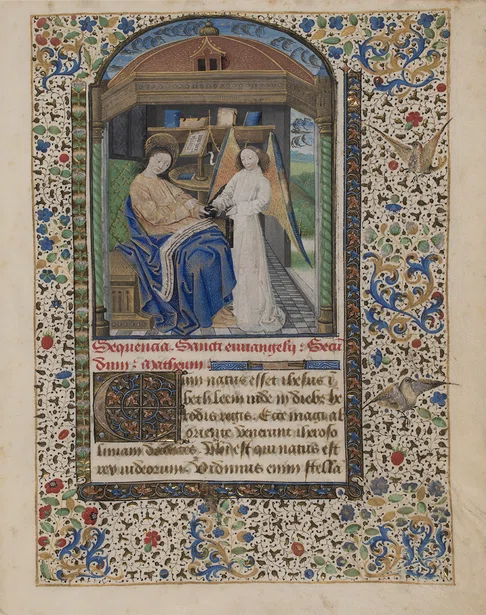 Sequencia. Sancti euuangelij: Secu
dum: Matheum:
Cum natus esset ihesus i
bethleem iude in diebz he
rodis regis. Ecce magi ab
oriente venerunt iheroso
limam dicentes. Vbi est qui natus est
rex iudeorum. Vidimus enim stella